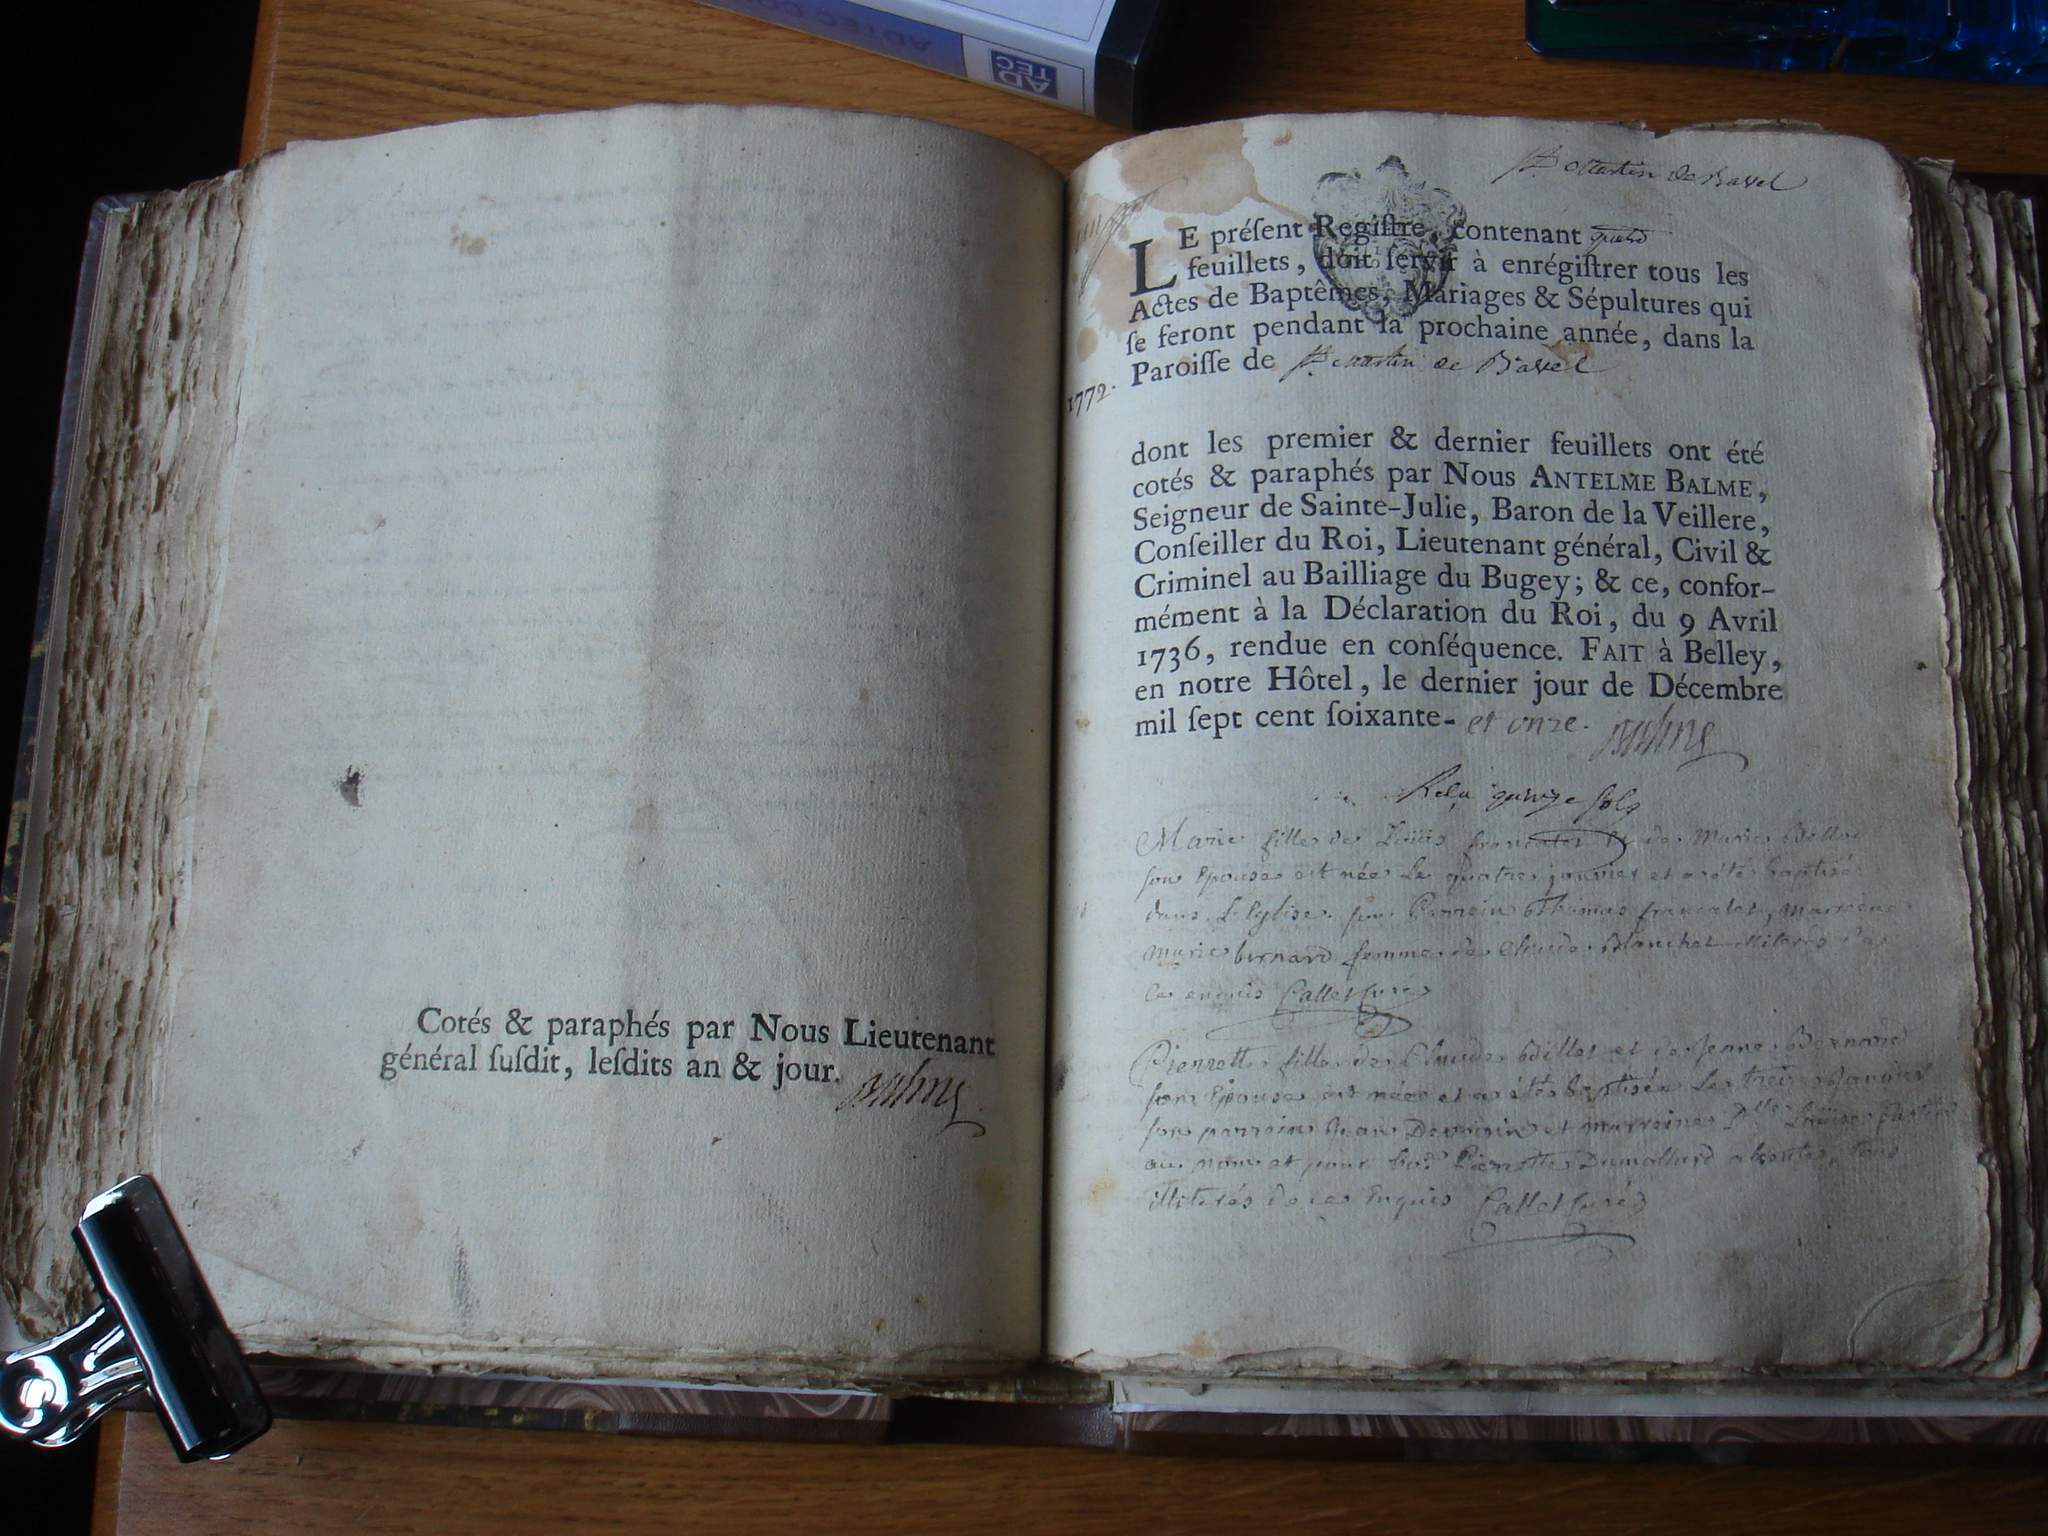 ADTEC CO
AD
TEC
Cotés & paraphés par Nous Lieutenant
général ſuſdit, leſdits an & jour.
St Martin de Bavel
LE préſent Regiſtre, contenant quatre
feuillets, doit ſervir à enrégiſtrer tous les
Actes de Baptêmes, Mariages & Sépultures qui
ſe feront pendant la prochaine année, dans la
Paroiſſe de St Martin de Bavel
1772.
dont les premier & dernier feuillets ont été
cotés & paraphés par Nous ANTELME BALME,
Seigneur de Sainte-Julie, Baron de la Veillere,
Conſeiller du Roi, Lieutenant général, Civil &
Criminel au Bailliage du Bugey; & ce, confor-
mément à la Déclaration du Roi, du 9 Avril
1736, rendue en conſéquence. FAIT à Belley,
en notre Hôtel, le dernier jour de Décembre
mil ſept cent ſoixante- et onze.
quinze sols
Marie fille de Loüis françalet et de Marie
son Epouse est née le quatre janvier et a été baptisée
dans L'Eglise son Parrein Thomas françalet, Marreine
marie bernard femme de Claude Blanchet illiterés
ce enquis Callet curé
Pierrette fille de Claude Billet et de jeanne Bernard
son Epouse est née et a été baptisée le treize janvier
son parrein et marreine Dlle Loüise
au nom et pour Pierrette Dumollard absente, tous
illiterés de ce Enquis Callet curé